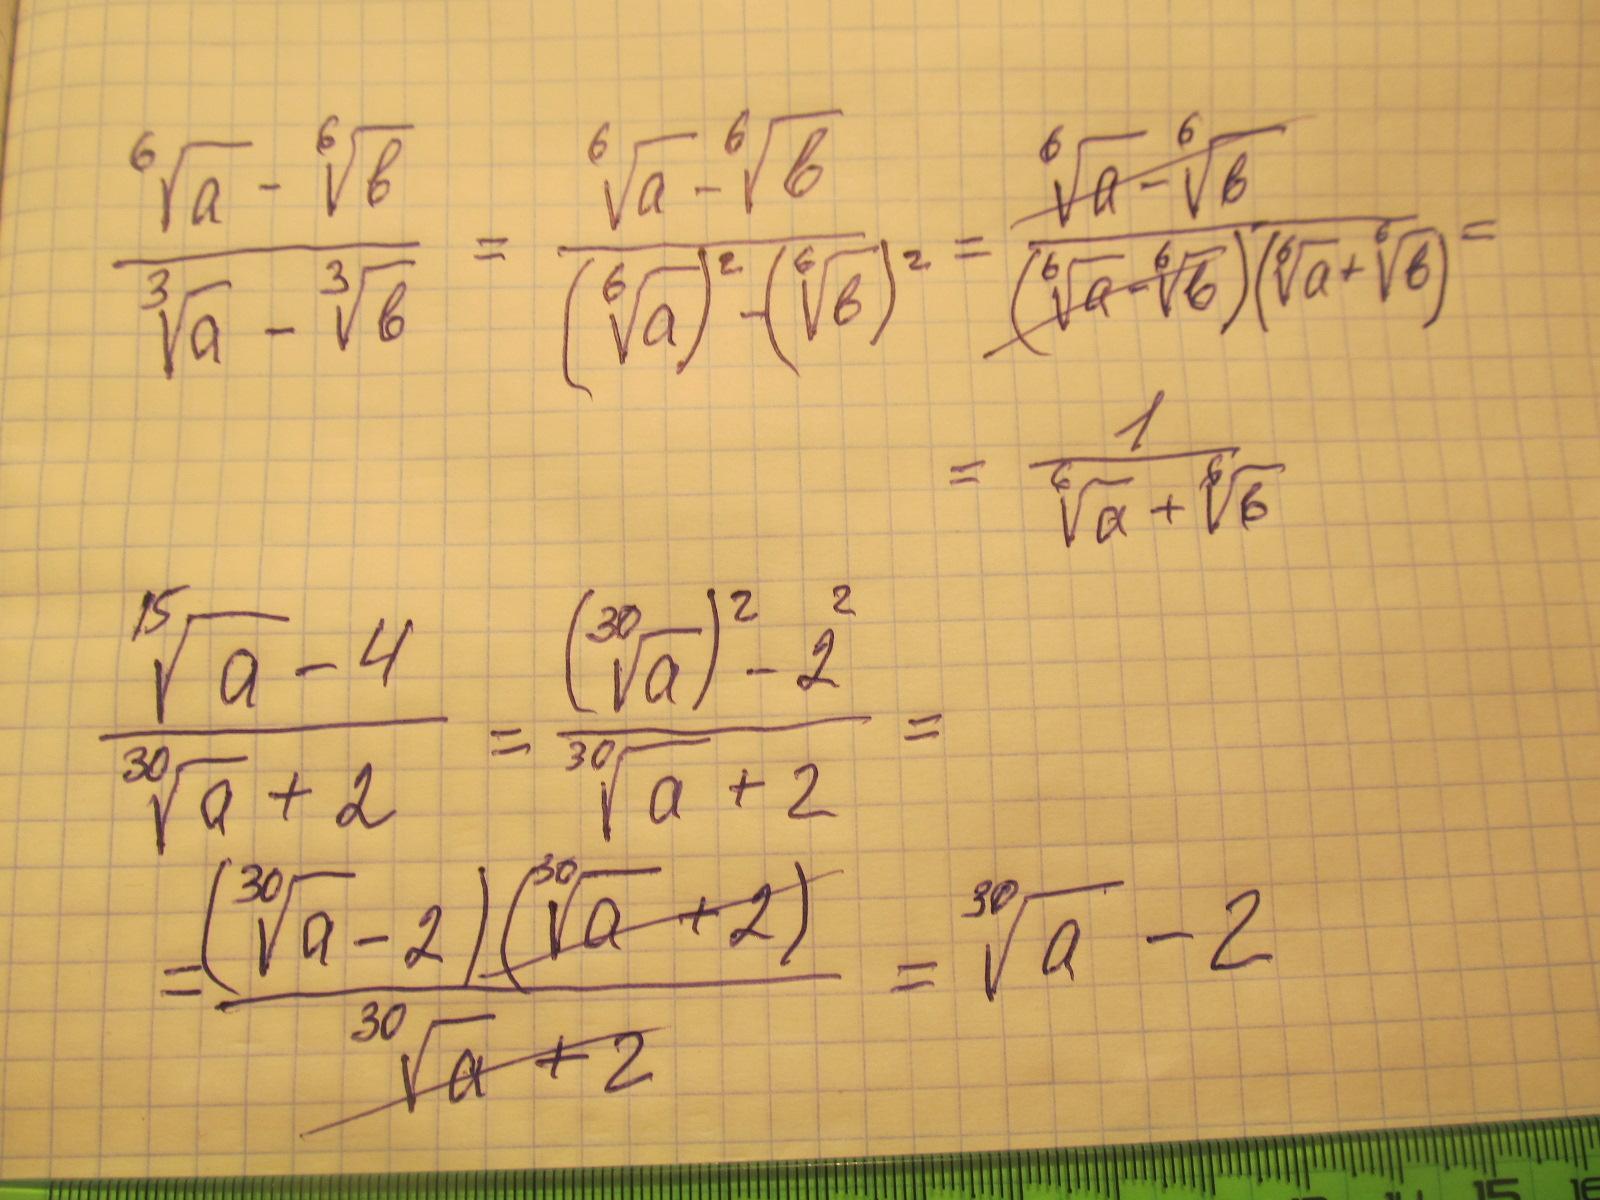 (⁶√a - ⁶√b)/(³√a - ³√b) = (⁶√a - ⁶√b)/((⁶√a)² - (⁶√b)²) = (⁶√a - ⁶√b)/((⁶√a - ⁶√b)(⁶√a + ⁶√b)) =
= 1/(⁶√a + ⁶√b)
(¹⁵√a - 4)/(³⁰√a + 2) = ((³⁰√a)² - 2²)/(³⁰√a + 2) =
= ((³⁰√a - 2)(³⁰√a + 2))/(³⁰√a + 2) = ³⁰√a - 2
15